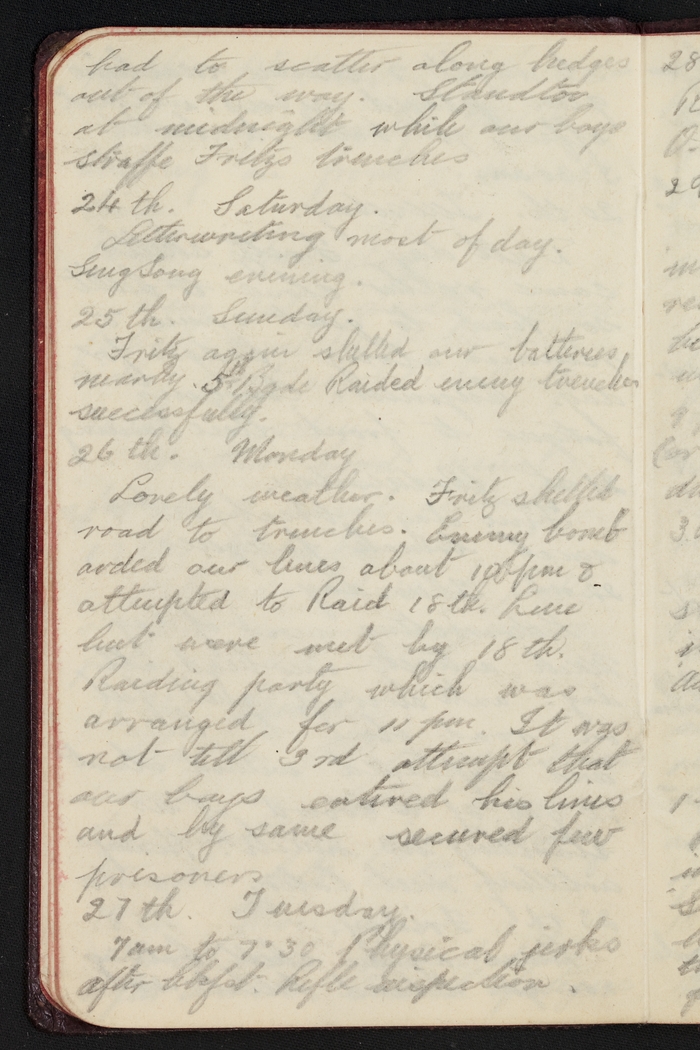 had to scatter along hedges
out of the way. Standtoo
at midnight while our boys
straffe Fritzs trenches
24th. Saturday.
Letterwriting most of day.
SingSong evening.
25th. Sunday.
Fritz again shelled our batteries
nearby. 5th Bgde Raided enemy trenches
successfully.
26th. Monday
Lovely weather. Fritz shelled
road to trenches. Enemy bomb
arded our lines about &
attempted to Raid 18th. line
but were met by 18th.
Raiding party which was
arranged for 11 pm. It was
not till 3rd attempt that
our boys entired his lines
and by same secured few
prisoners
27th. Tuesday.
7am to 7.30 Physical jerks
after bkfst. Rifle inspection.
28
29